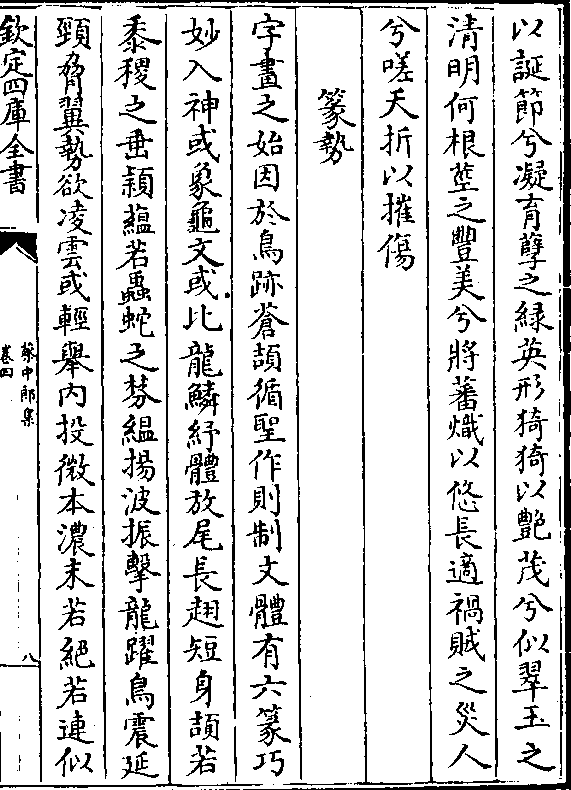 以誕節兮凝育孽之緑英形猗猗以艶茂兮似翠玉之
清明何根莖之豐美兮將蕃熾以悠長適禍賊之災人
兮嗟夭折以摧傷
篆勢
字畫之始因於鳥跡蒼頡循聖作則制文體有六篆巧
妙入神或象龜文或比龍鱗紓體放尾長翅短身頡若
黍稷之垂潁藴若蟲蛇之棼緼揚波振擊龍躍鳥震延
頸脅翼勢欲凌雲或輕舉内投微本濃末若絕若連似
欽定四庫全書
蔡中郎集
卷四
八